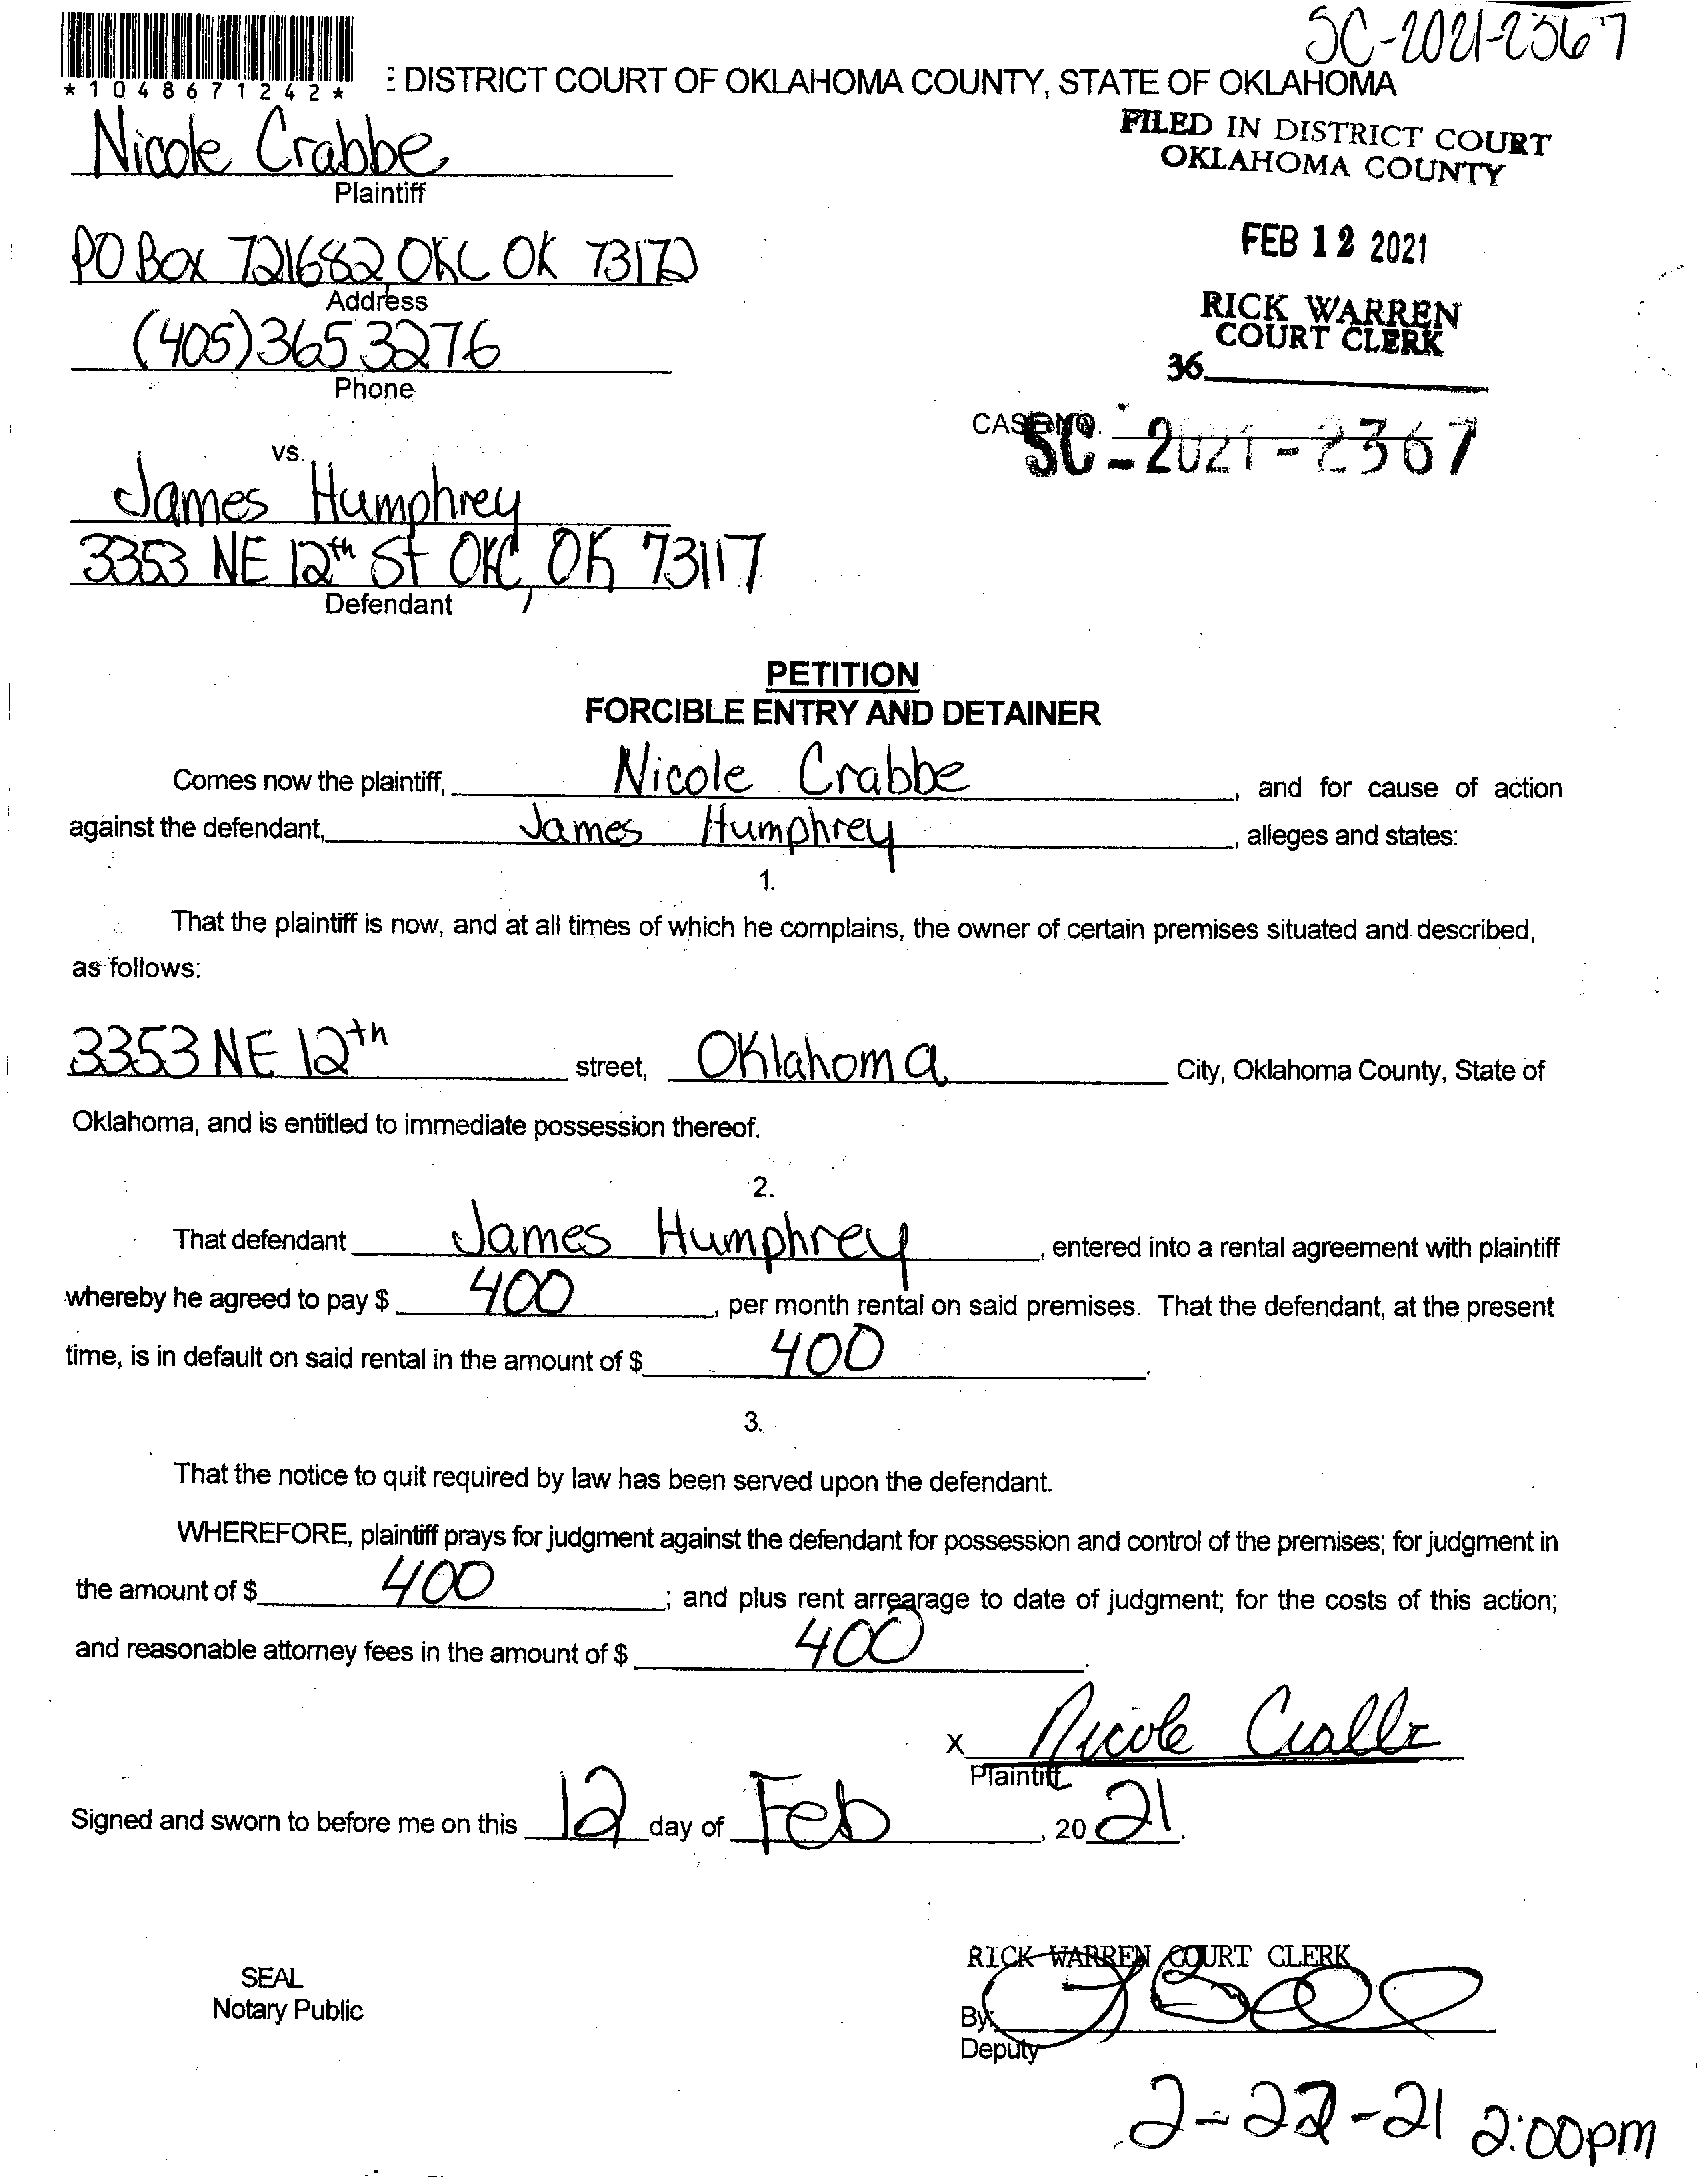 SC-2021-2367
*1048671242*
DISTRICT COURT OF OKLAHOMA COUNTY, STATE OF OKLAHOMA
FILED IN DISTRICT COURT
OKLAHOMA COUNTY
Nicole Crabbe
Plaintiff
FEB 12 2021
PO Box 721682 OKC OK 73172
Address
RICK WARREN
COURT CLERK
(405)365 3276
Phone
36
CASE NO.
SC-2021-2367
vs.
James Humphrey
3353 NE 12th St OKC, OK 73117
Defendant
PETITION
FORCIBLE ENTRY AND DETAINER
Comes now the plaintiff, Nicole Crabbe, and for cause of action
against the defendant, James Humphrey, alleges and states:
1.
That the plaintiff is now, and at all times of which he complains, the owner of certain premises situated and described,
as follows:
3353 NE 12th street, Oklahoma City, Oklahoma County, State of
Oklahoma, and is entitled to immediate possession thereof.
2.
That defendant James Humphrey, entered into a rental agreement with plaintiff
whereby he agreed to pay $ 400, per month rental on said premises. That the defendant, at the present
time, is in default on said rental in the amount of $ 400.
3.
That the notice to quit required by law has been served upon the defendant.
WHEREFORE, plaintiff prays for judgment against the defendant for possession and control of the premises; for judgment in
the amount of $ 400; and plus rent arrearage to date of judgment; for the costs of this action;
and reasonable attorney fees in the amount of $ 400.
X Nicole Crabbe
Plaintiff
Signed and sworn to before me on this 12 day of Feb, 20 21.
RICK WARREN COURT CLERK
SEAL
Notary Public
By:
Deputy
2-22-21 2:00pm